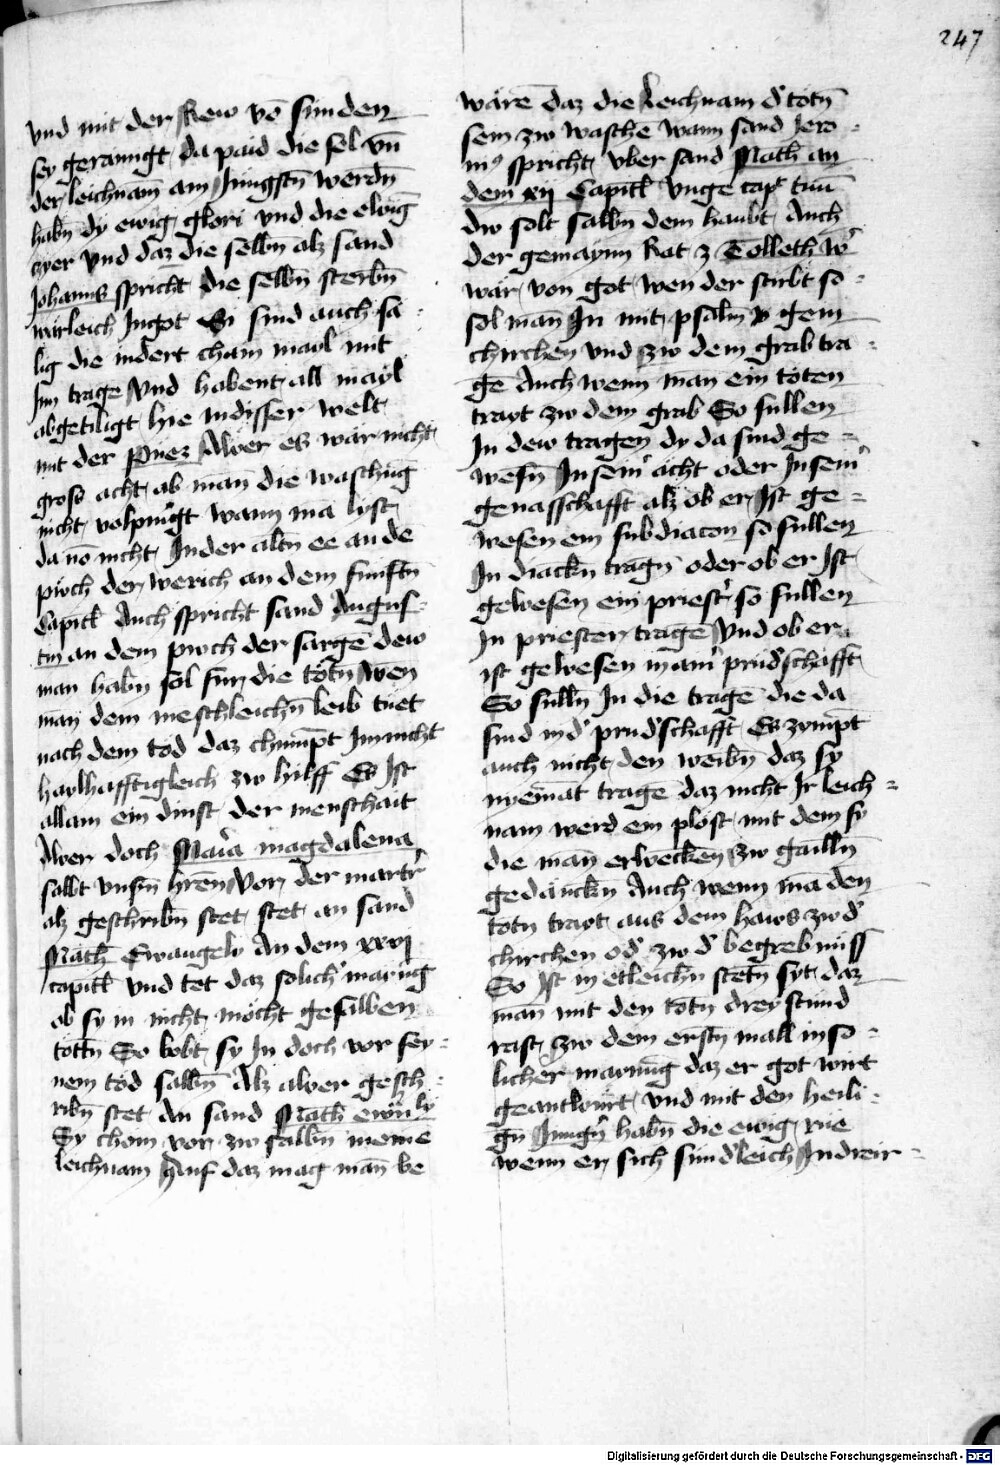 247
vnd mit der Rew vō sunden
sey gerainigt da paid die sel vn̄
der leichnam̄ am Jungstn̄ werdn̄
habn̄ dy ewig glori vnd die ewig
zyer vnd daz die selbn̄ alz sand
Johanns spricht die selbn̄ sterbn̄
wärleich Jngot Si sind auch sä
lig die indert chain mayl mit
Jnn trage Vnd habent all mayl
abgetiligt hie Indisser welt
mit der puez Aber es wär nicht
gross acht ab man̄ die waschug
nicht volpringt wann ma lyst
da vō nicht Jnder altn̄ ee an de
püch der werich an dem funftn̄
Capitl Auch spricht sand Augus
tin an dem puch der sarge dew
man habn̄ sol fur die totn̄ Wen
man dem meschleichn̄ leib tuet
nach dem tod daz chumpt Jm nicht
haylhafftigleich zw hilff Es Jst
allain ein dinst der menschait
Aber doch Maria magdalena
salbt vnsn̄ hren̄ Vor der martr
alz geschribn̄ stet stet an sand
Math Ewangely An dem xxvj
capitl vnd tet daz solich mainug
ob sy in nicht möcht gesalben
totn̄ So wolt sy Jn doch vor sey
nem tod salbn̄ Alz aber gesch
ribn̄ stet An sand Math ewn̄ly
Sy chom vor zw salbn̄ meine
leichnam Auf daz mag man̄ be
wärē daz die leichnam d' totn̄
sein zw waschē wann sand Jero
ni9 spricht vber sand Math an
dem xij Capitl vnge cap
dw solt salbn̄ dem haubt Auch
der gemaynn Rat z Tolleth
war von got wen der stirbt so
sol man̄ Jn mit psalm v gein
chirchen vnd zw dem grab tra
ge Auch wenn man̄ ein toten
trayt zw dem grab So sullen
Jn dew tragen dy da sind ge
wesn̄ Jn seinr ächt oder Jn seinr
genasschafft alz ob er Jst ge
wesen ein subdiacon so sullen
Jn diackn̄ tragn̄ oder ob er Jst
gewesen ein priestr so sullen
Jn priester tragē Vnd ob er
ist gewesen in ainr prüd'schafft
So sulln̄ Jn die tragē die da
sind in d' prud'schafft Es zympt
auch nicht den weibn̄ daz sy
nyemāt tragē daz nicht Jr leich
nam werd em plöst mit dem sy
die man̄ erweckēn zw gailln̄
gedänckn̄ Auch wenn mā den
totn trayt aus dem haws zw d'
chirchen od' zw d' begrebnüss
So Jst in etleichn̄ stetn̄ syt daz
man̄ mit den totn̄ drey stund
rast zw dem erstn̄ mall in so
licher mainūg daz er got wirt
geantwürt vnd mit den heili
gn̄ Jungrn̄ habn̄ die ewig rüe
wenn er sich sund'leich Jn dreir
Digitalisierung gefördert durch die Deutsche Forschungsgemeinschaft - DFG